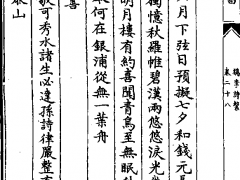 檇李詩繫
卷二十八
月下弦日預擬七夕和錢元
獨憶秋羅帷碧漢兩悠悠淚光
明月樓有約喜聞青鳥至無眠
何在銀浦從無一葉舟
可秀水諸生必達孫詩律嚴整
山